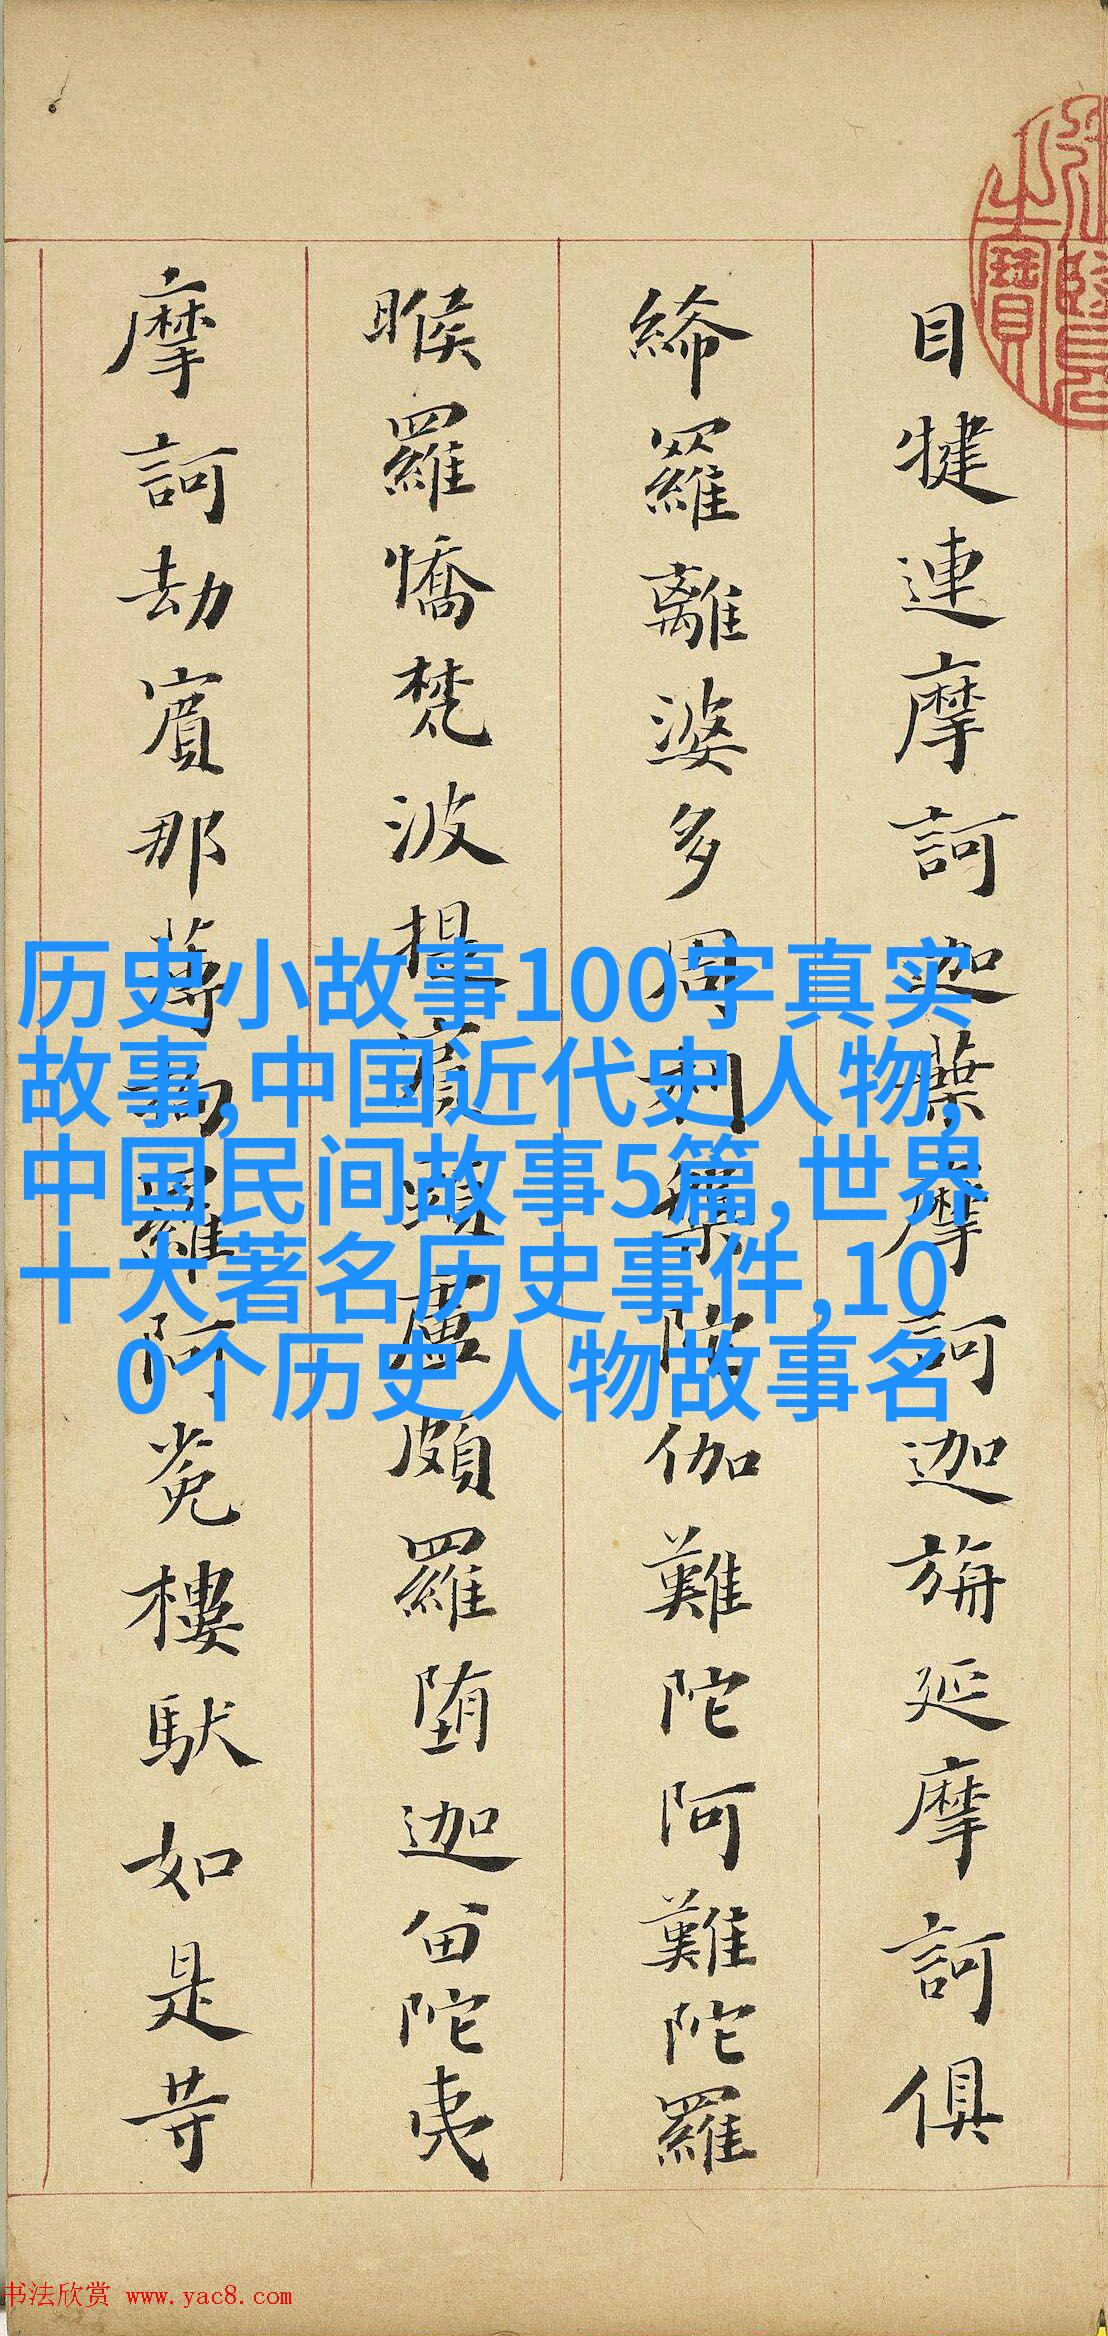 目犍連摩訶迦葉摩訶迦旃延摩訶俱
絺羅離婆多周利槃陀伽難陀阿難陀羅
睺羅憍梵波提賓頭盧頗羅堕迦留陀夷
摩訶劫賓那薄拘羅阿㝹樓馱如是等
历史小故事100字真实
故事,中国近代史人物,
中国民间故事5篇,世界
十大著名历史事件,10
0个历史人物故事名
书法欣赏 www.yac8.com